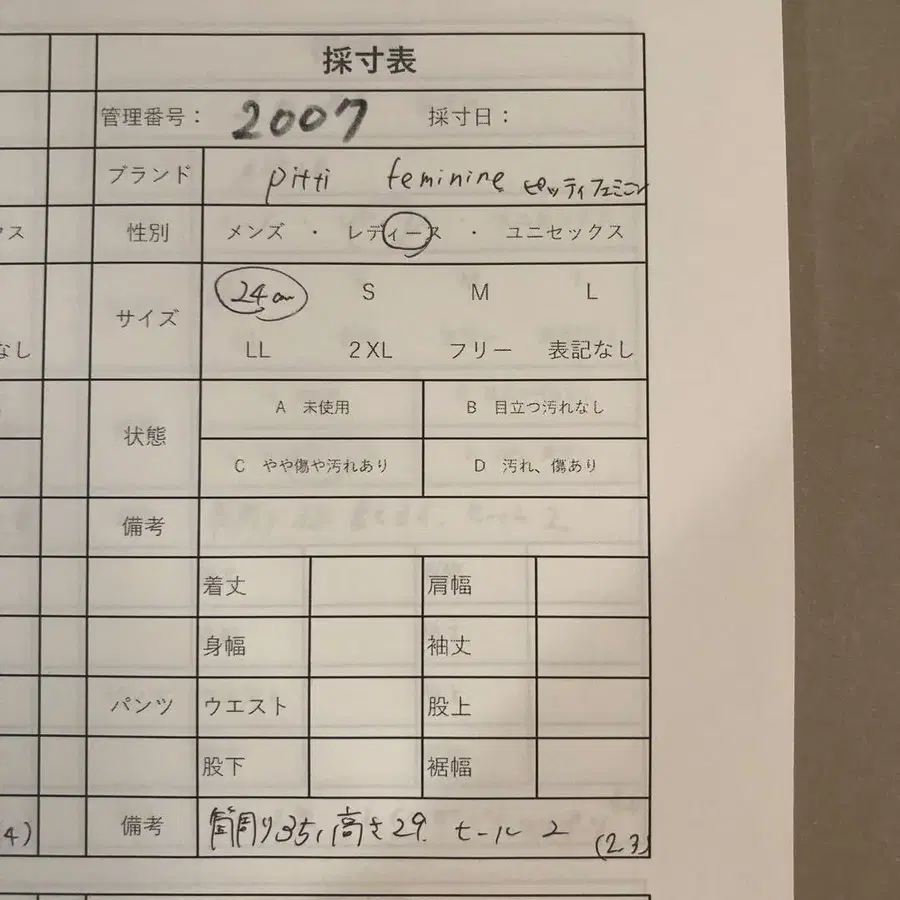 採寸表
管理番号: 2007 採寸日:
ブランド pitti feminine ピッティフェミニン
性別 メンズ ・ レディース ・ ユニセックス
サイズ 24cm S M L
LL 2XL フリー 表記なし
状態 A 未使用 B 目立つ汚れなし
C やや傷や汚れあり D 汚れ、傷あり
備考
着丈 肩幅
身幅 袖丈
パンツ ウエスト 股上
股下 裾幅
備考 筒周り35、高さ29. ヒール2 (2.3)
ス
なし
4)